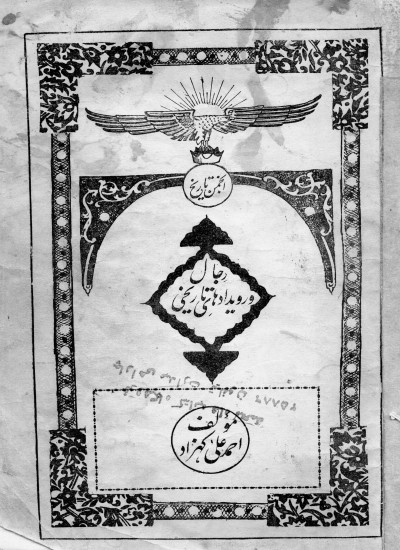 انجمن تاریخ
رجال
و رویدادهای تاریخی
مؤلف
احمد علی کهزاد